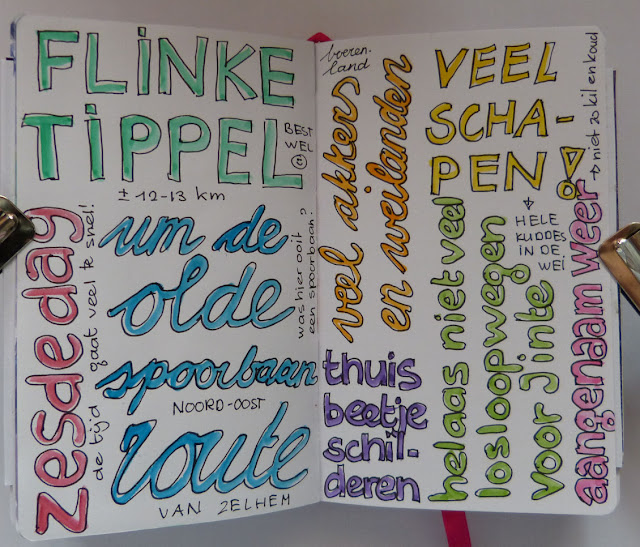 FLINKE
TIPPEL
BEST
WEL
± 12-13 km
zesde dag
de tijd gaat veel te snel!
um de
olde
spoorbaan
NOORD-OOST
route
VAN ZELHEM
was hier ooit
een spoorbaan?
boeren-
land
veel akkers
en weilanden
thuis
beetje
schil-
deren
VEEL
SCHA-
PEN!
HELE
KUDDES
IN DE
WEI
helaas niet veel
losloopwegen
voor Jinte
aangenaam weer
→ niet zo kil en koud